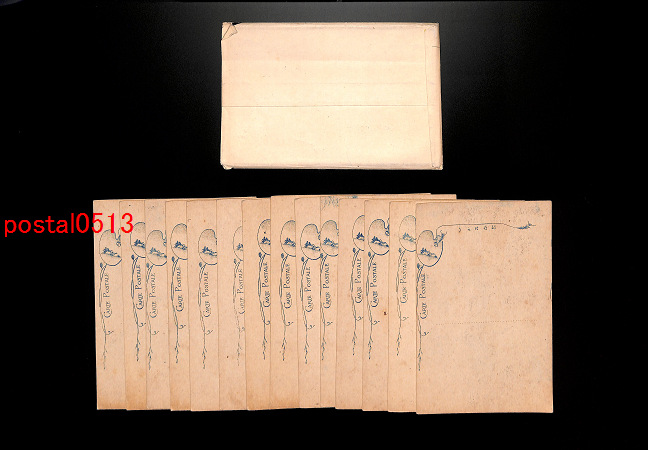 postal0513
CARTE POSTALE
CARTE POSTALE
CARTE POSTALE
CARTE POSTALE
CARTE POSTALE
CARTE POSTALE
CARTE POSTALE
CARTE POSTALE
CARTE POSTALE
CARTE POSTALE
CARTE POSTALE
CARTE POSTALE
CARTE POSTALE
CARTE POSTALE